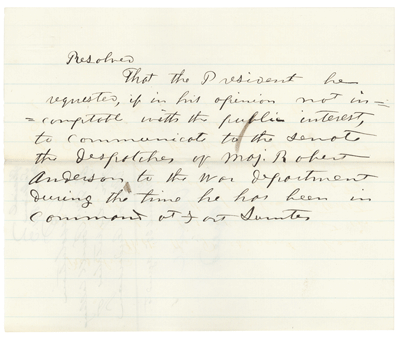 Resolved
That the President be
requested, if in his opinion not in=
=compatible with the public interest,
to communicate to the Senate
the despatches of Maj. Robert
Anderson to the War department
during the time he has been in
command at Fort Sumter